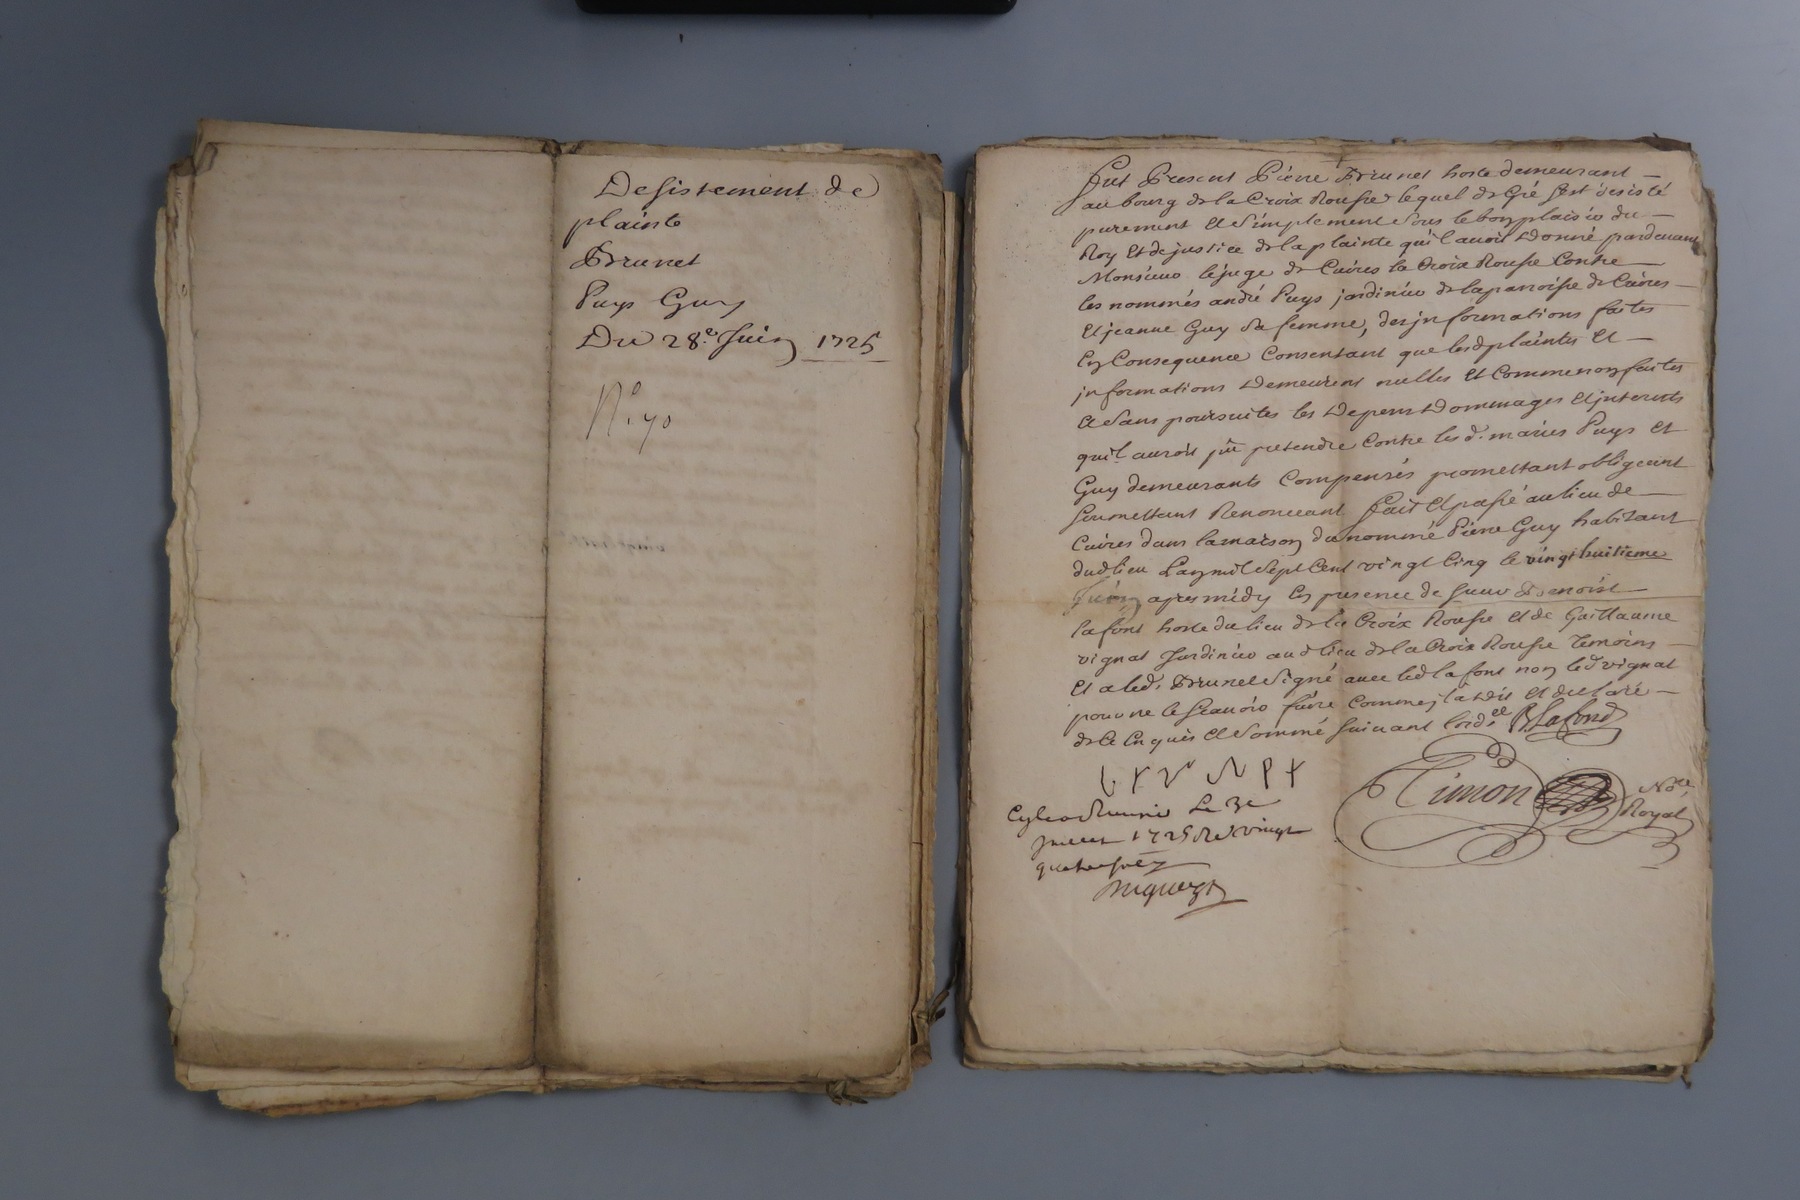 Desistement de
plainte
Brunet
Puys Guy
Du 28.e Juin 1725
N.o 70
Fut Present Pierre Brunet hoste demeurant
au bourg de la Croix Rousse lequel de Gré s'est desisté
purement et simplement sous le bon plaisir du
Roy et de justice de la plainte qu'il auoit donné pardeuant
Monsieur le juge de Cuires la Croix Rousse Contre
les nommés andré Puys jardinier de la paroisse de Cuires
et jeanne Guy sa femme, des informations faites
en Consequence Consentant que lesd plaintes et
informations Demeurent nulles et Comme non faites
et sans poursuites les Depens Dommages et interests
qu'il auroit pû pretendre Contre les d. mariés Puys et
Guy demeurants Compensés promettant obligeant
soumettant Renonceant Fait et passé au lieu de
Cuires dans la maison du nommé Pierre Guy habitant
dud lieu L'an mil sept Cent vingt Cinq le vingt huitieme
Juin apres midy en presence de sieur Benoist
lafont hoste du lieu de la Croix Rousse et de Guillaume
vignat Jardinier aud lieu de la Croix Rousse Temoins
et a led. Brunet signé auec led lafont non led vignat
pour ne le scauoir faire Comme il a dit et declaré
de ce enquis et sommé suiuant l'ord.ce B Lafond
Timon No.re
Royal
Le 3e
1725 vingt
quatre